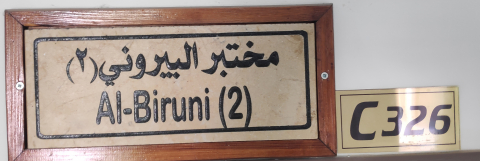 مختبر البيروني (٢)
Al-Biruni (2)
C326